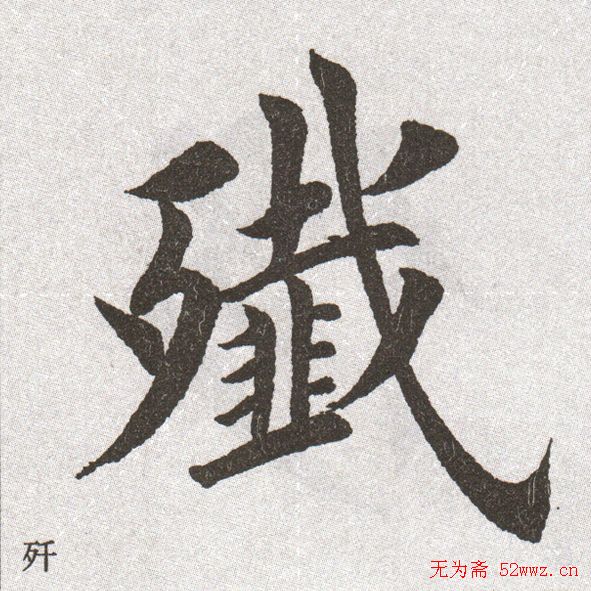 殲
歼
无为斋 52wwz.cn